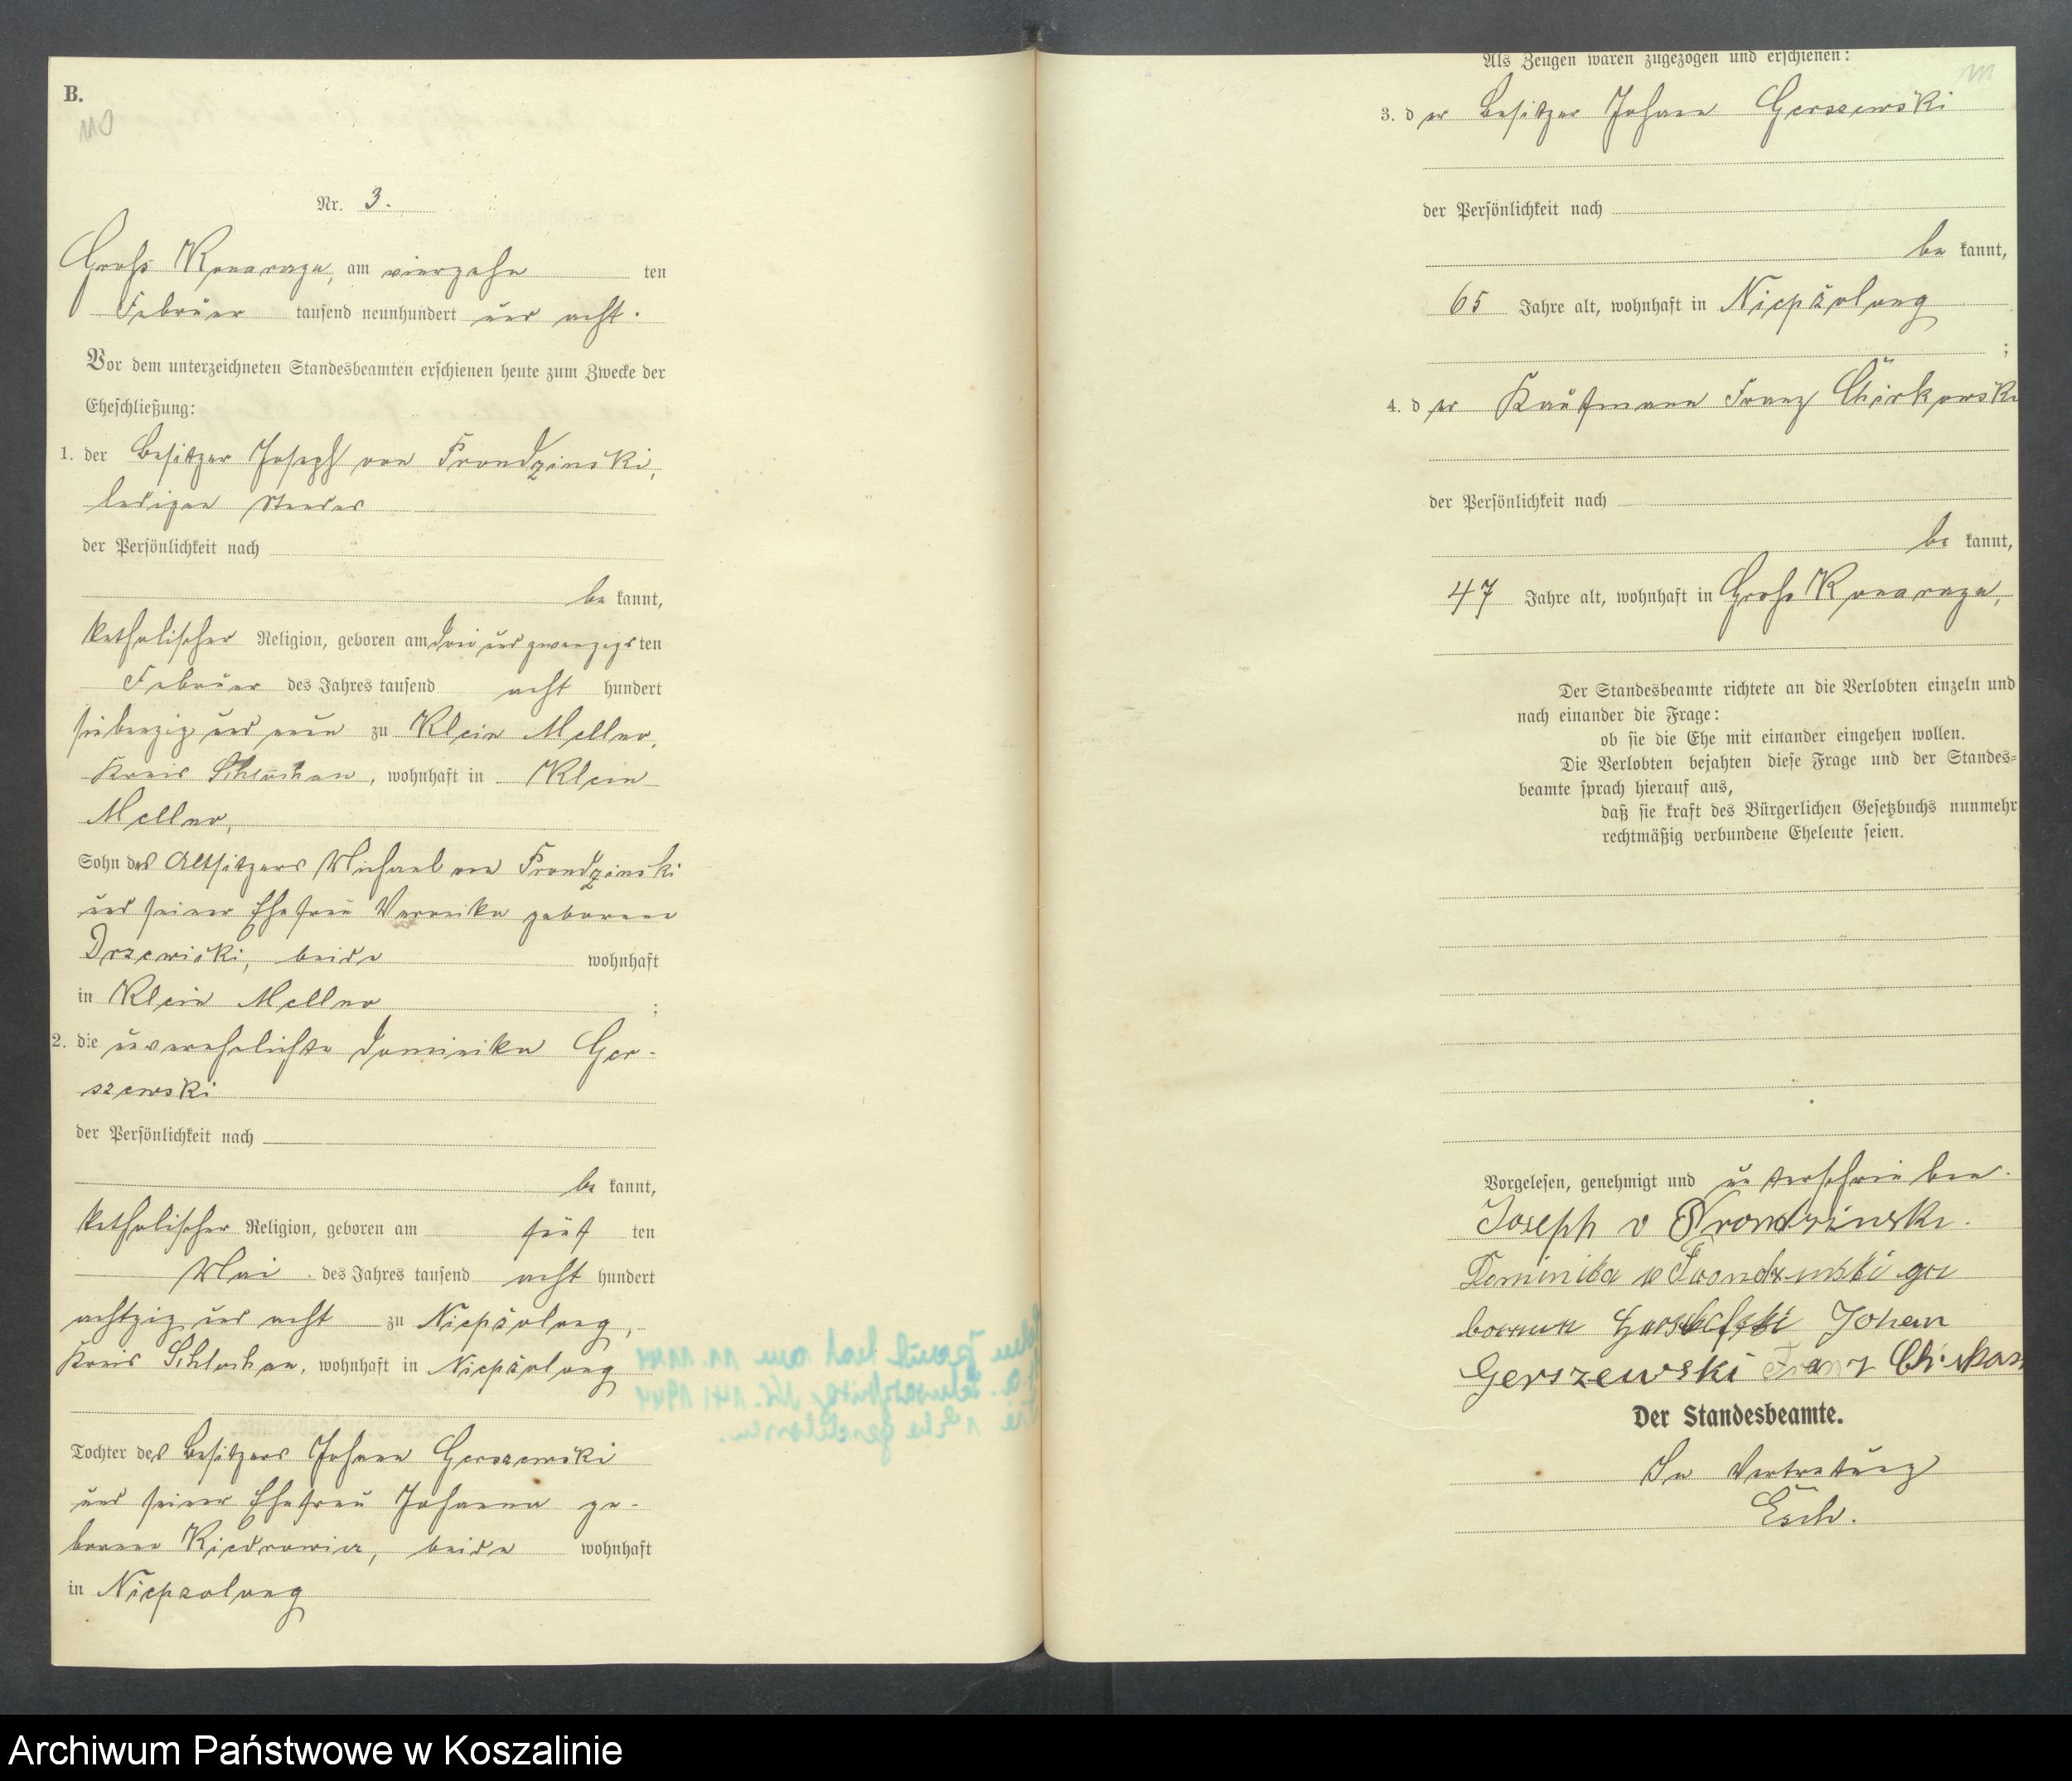 B.
Nr. 3.
Groß Konarczyn, am vierzehn ten
Februar tausend neunhundert und acht.
Vor dem unterzeichneten Standesbeamten erschienen heute zum Zwecke der
Eheschließung:
1. der Besitzer Joseph von Prondzinski,
ledigen Standes
der Persönlichkeit nach
be kannt,
katholischer Religion, geboren am drei und zwanzigs ten
Februar des Jahres tausend acht hundert
siebenzig und neun zu Klein Mellno,
Kreis Schlochau, wohnhaft in Klein
Mellno,
Sohn des Altsitzers Michael von Prondzinski
und seiner Ehefrau Veronika geborene
Drzewicki, beide wohnhaft
in Klein Mellno ;
2. die unverehelichte Dominika Ger-
szewski
der Persönlichkeit nach
be kannt,
katholischer Religion, geboren am fünf ten
Mai des Jahres tausend acht hundert
achtzig und acht zu Niepszolong,
Kreis Schlochau, wohnhaft in Niepszolong
Tochter des Besitzers Johann Gerszewski
und seiner Ehefrau Johanna ge-
borene Kiedrowicz, beide wohnhaft
in Niepszolong
Als Zeugen waren zugezogen und erschienen:
3. d er Besitzer Johann Gerszewski
der Persönlichkeit nach
be kannt,
65 Jahre alt, wohnhaft in Niepszolong
;
4. d er Kaufmann Franz
der Persönlichkeit nach
be kannt,
47 Jahre alt, wohnhaft in Groß Konarczyn,
Der Standesbeamte richtete an die Verlobten einzeln und
nach einander die Frage:
ob sie die Ehe mit einander eingehen wollen.
Die Verlobten bejahten diese Frage und der Standes-
beamte sprach hierauf aus,
daß sie kraft des Bürgerlichen Gesetzbuchs nunmehr
rechtmäßig verbundene Eheleute seien.
Vorgelesen, genehmigt und unterschrieben.
Joseph v Prondzinski.
Dominika v Prondzinski ge
borenen Johan
Gerszewski Franz
Der Standesbeamte.
In Vertretung
Esch.
Archiwum Państwowe w Koszalinie